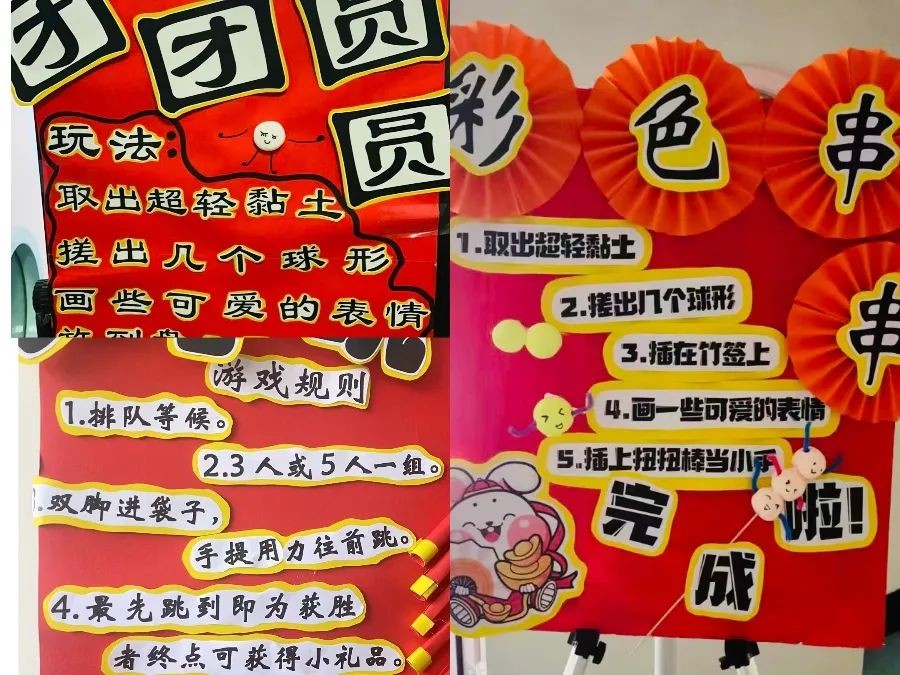 团团圆
圆
玩法:
取出超轻黏土
搓出几个球形
画些可爱的表情
游戏规则
1.排队等候。
2.3人或5人一组。
双脚进袋子,
手提用力往前跳。
4.最先跳到即为获胜
者终点可获得小礼品。
彩色串
串
1.取出超轻黏土
2.搓出几个球形
3.插在竹签上
4.画一些可爱的表情
5.插上扭扭棒当小手
完成啦!